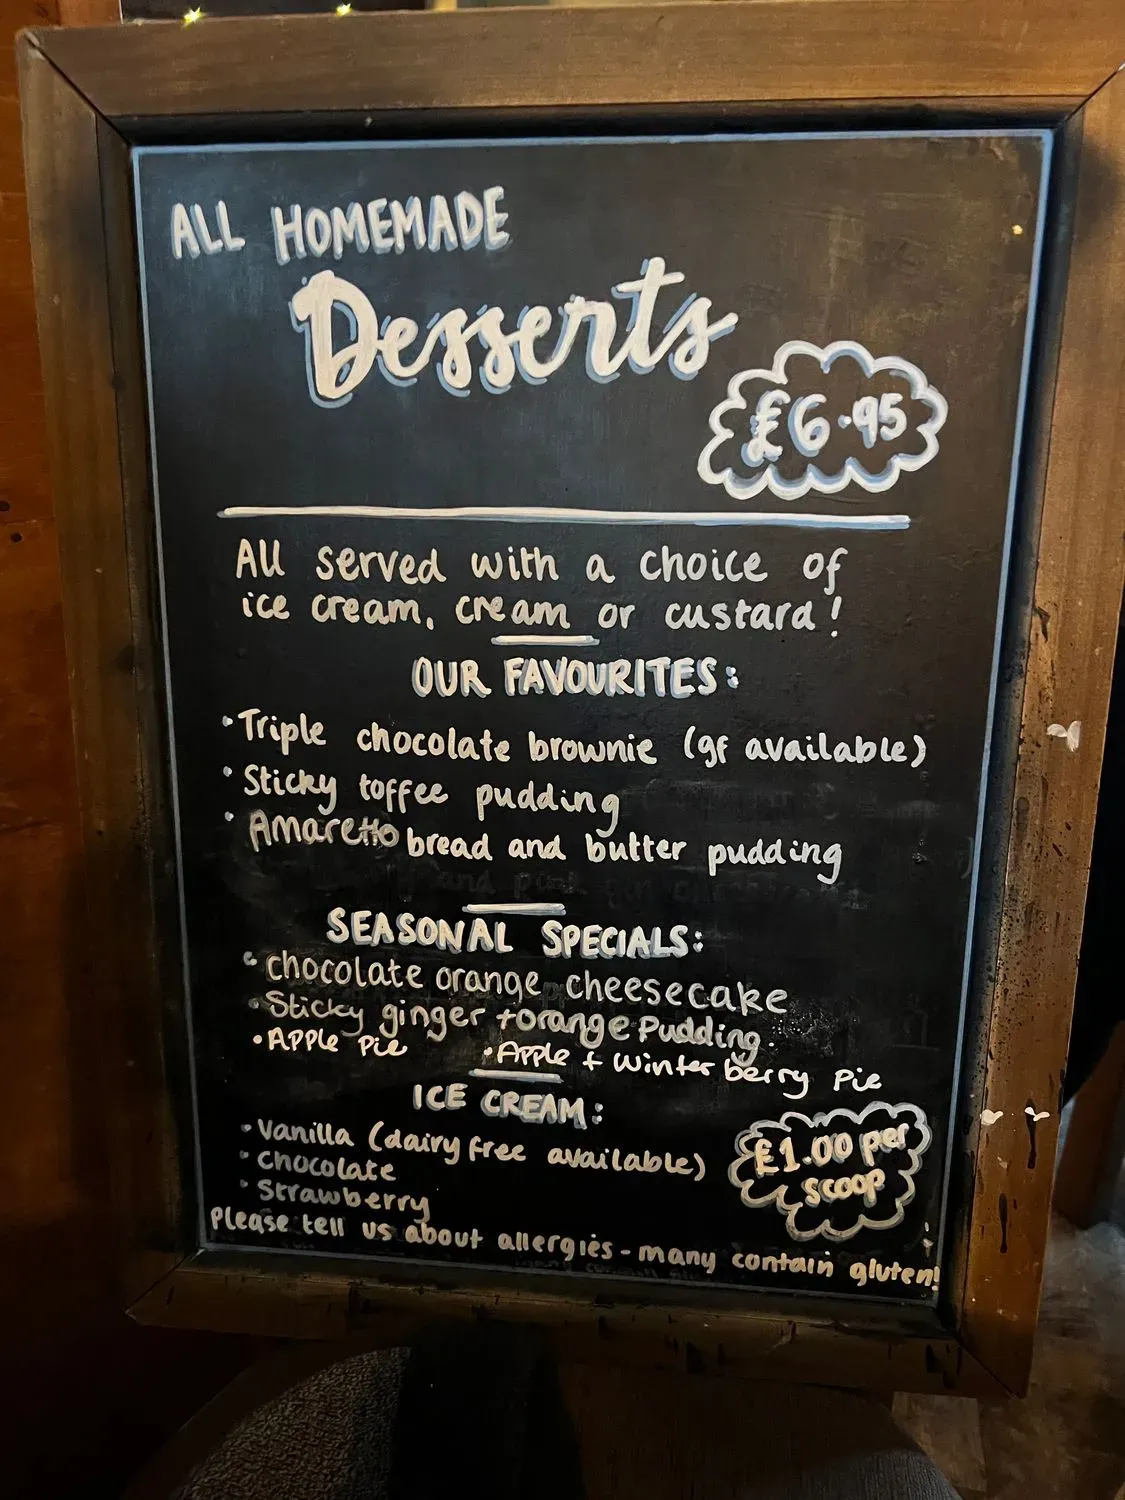 ALL HOMEMADE
Desserts
£6.95
All served with a choice of
ice cream, cream or custard!
OUR FAVOURITES:
• Triple chocolate brownie (gf available)
• Sticky toffee pudding
• Amaretto bread and butter pudding
SEASONAL SPECIALS:
• chocolate orange cheesecake
• Sticky ginger + orange Pudding.
• Apple Pie • Apple + Winter berry Pie
ICE CREAM:
• Vanilla (dairy free available)
• Chocolate
• Strawberry
£1.00 per
scoop
Please tell us about allergies - many contain gluten!